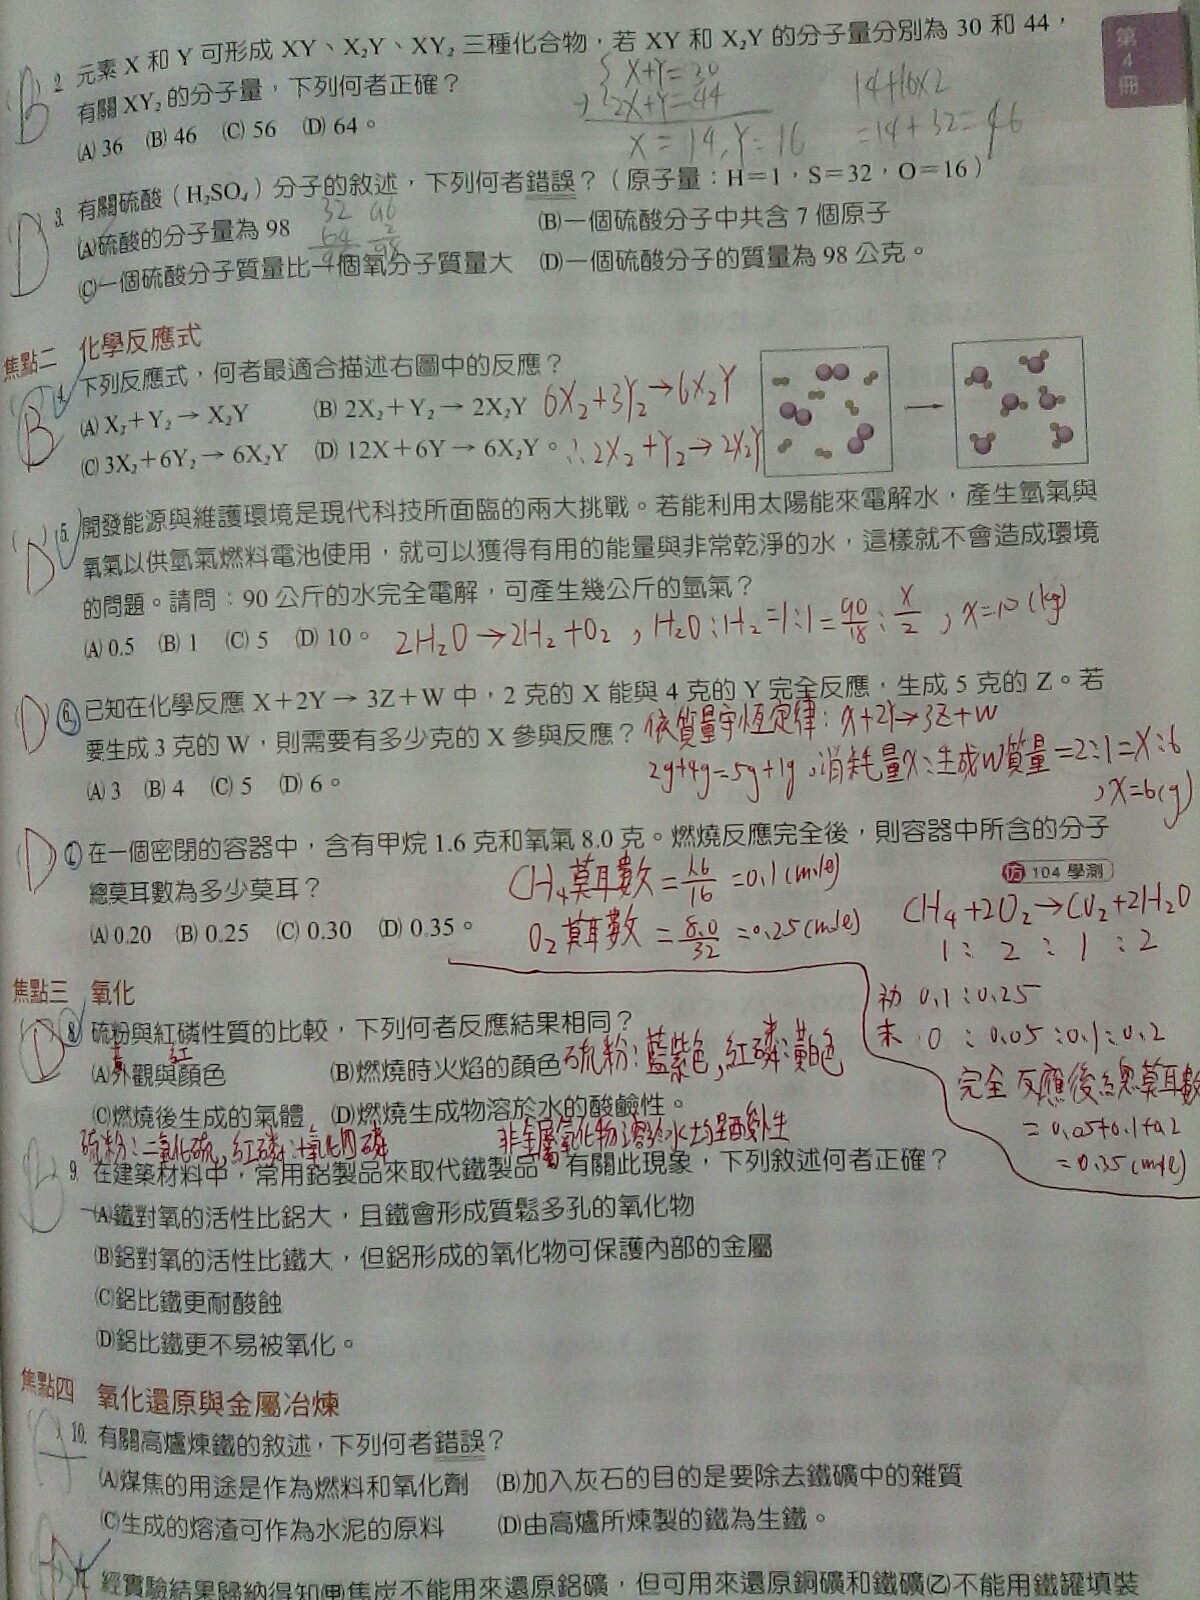 第4冊
2. 元素 X 和 Y 可形成 XY、X₂Y、XY₂ 三種化合物，若 XY 和 X₂Y 的分子量分別為 30 和 44，
(B) 有關 XY₂ 的分子量，下列何者正確？
(A) 36 (B) 46 (C) 56 (D) 64。
X+Y=30
2X+Y=44
X=14, Y=16
14+16×2
=14+32=46
(D) 3. 有關硫酸（H₂SO₄）分子的敘述，下列何者錯誤？（原子量：H=1，S=32，O=16）
(A)硫酸的分子量為 98 (B)一個硫酸分子中共含 7 個原子
32 96
64 2
96 98
(C)一個硫酸分子質量比一個氧分子質量大 (D)一個硫酸分子的質量為 98 公克。
焦點二 化學反應式
(B) 4. 下列反應式，何者最適合描述右圖中的反應？
(A) X₂+Y₂→X₂Y (B) 2X₂+Y₂→2X₂Y 6X₂+3Y₂→6X₂Y
(C) 3X₂+6Y₂→6X₂Y (D) 12X+6Y→6X₂Y。 ∴2X₂+Y₂→2X₂Y
(D) 5. 開發能源與維護環境是現代科技所面臨的兩大挑戰。若能利用太陽能來電解水，產生氫氣與
氧氣以供氫氣燃料電池使用，就可以獲得有用的能量與非常乾淨的水，這樣就不會造成環境
的問題。請問：90 公斤的水完全電解，可產生幾公斤的氫氣？
(A) 0.5 (B) 1 (C) 5 (D) 10。 2H₂O→2H₂+O₂，H₂O：H₂=1：1=90/18：X/2，x=10(kg)
(D) 6. 已知在化學反應 X+2Y→3Z+W 中，2 克的 X 能與 4 克的 Y 完全反應，生成 5 克的 Z。若
要生成 3 克的 W，則需要有多少克的 X 參與反應？ 依質量守恆定律：X+2Y→3Z+W
(A) 3 (B) 4 (C) 5 (D) 6。 2g+4g=5g+1g，消耗量X：生成W質量=2：1=X：6
，X=6(g)
(D) 7. 在一個密閉的容器中，含有甲烷 1.6 克和氧氣 8.0 克。燃燒反應完全後，則容器中所含的分子
總莫耳數為多少莫耳？ 仿 104 學測
(A) 0.20 (B) 0.25 (C) 0.30 (D) 0.35。
CH₄莫耳數=1.6/16=0.1(mole)
O₂莫耳數=8.0/32=0.25(mole)
CH₄+2O₂→CO₂+2H₂O
1：2：1：2
初 0.1：0.25
末 0：0.05：0.1：0.2
完全反應後總莫耳數
=0.05+0.1+0.2
=0.35(mole)
焦點三 氧化
(D) 8. 硫粉與紅磷性質的比較，下列何者反應結果相同？
黃 紅
(A)外觀與顏色 (B)燃燒時火焰的顏色 硫粉：藍紫色，紅磷：黃白色
(C)燃燒後生成的氣體 (D)燃燒生成物溶於水的酸鹼性。
硫粉：二氧化硫，紅磷：十氧化四磷 非金屬氧化物溶於水均呈酸性
(B) 9. 在建築材料中，常用鋁製品來取代鐵製品。有關此現象，下列敘述何者正確？
(A)鐵對氧的活性比鋁大，且鐵會形成質鬆多孔的氧化物
(B)鋁對氧的活性比鐵大，但鋁形成的氧化物可保護內部的金屬
(C)鋁比鐵更耐酸蝕
(D)鋁比鐵更不易被氧化。
焦點四 氧化還原與金屬冶煉
(A) 10. 有關高爐煉鐵的敘述，下列何者錯誤？
(A)煤焦的用途是作為燃料和氧化劑 (B)加入灰石的目的是要除去鐵礦中的雜質
(C)生成的熔渣可作為水泥的原料 (D)由高爐所煉製的鐵為生鐵。
11. 經實驗結果歸納得知(甲)焦炭不能用來還原鋁礦，但可用來還原銅礦和鐵礦(乙)不能用鐵罐填裝